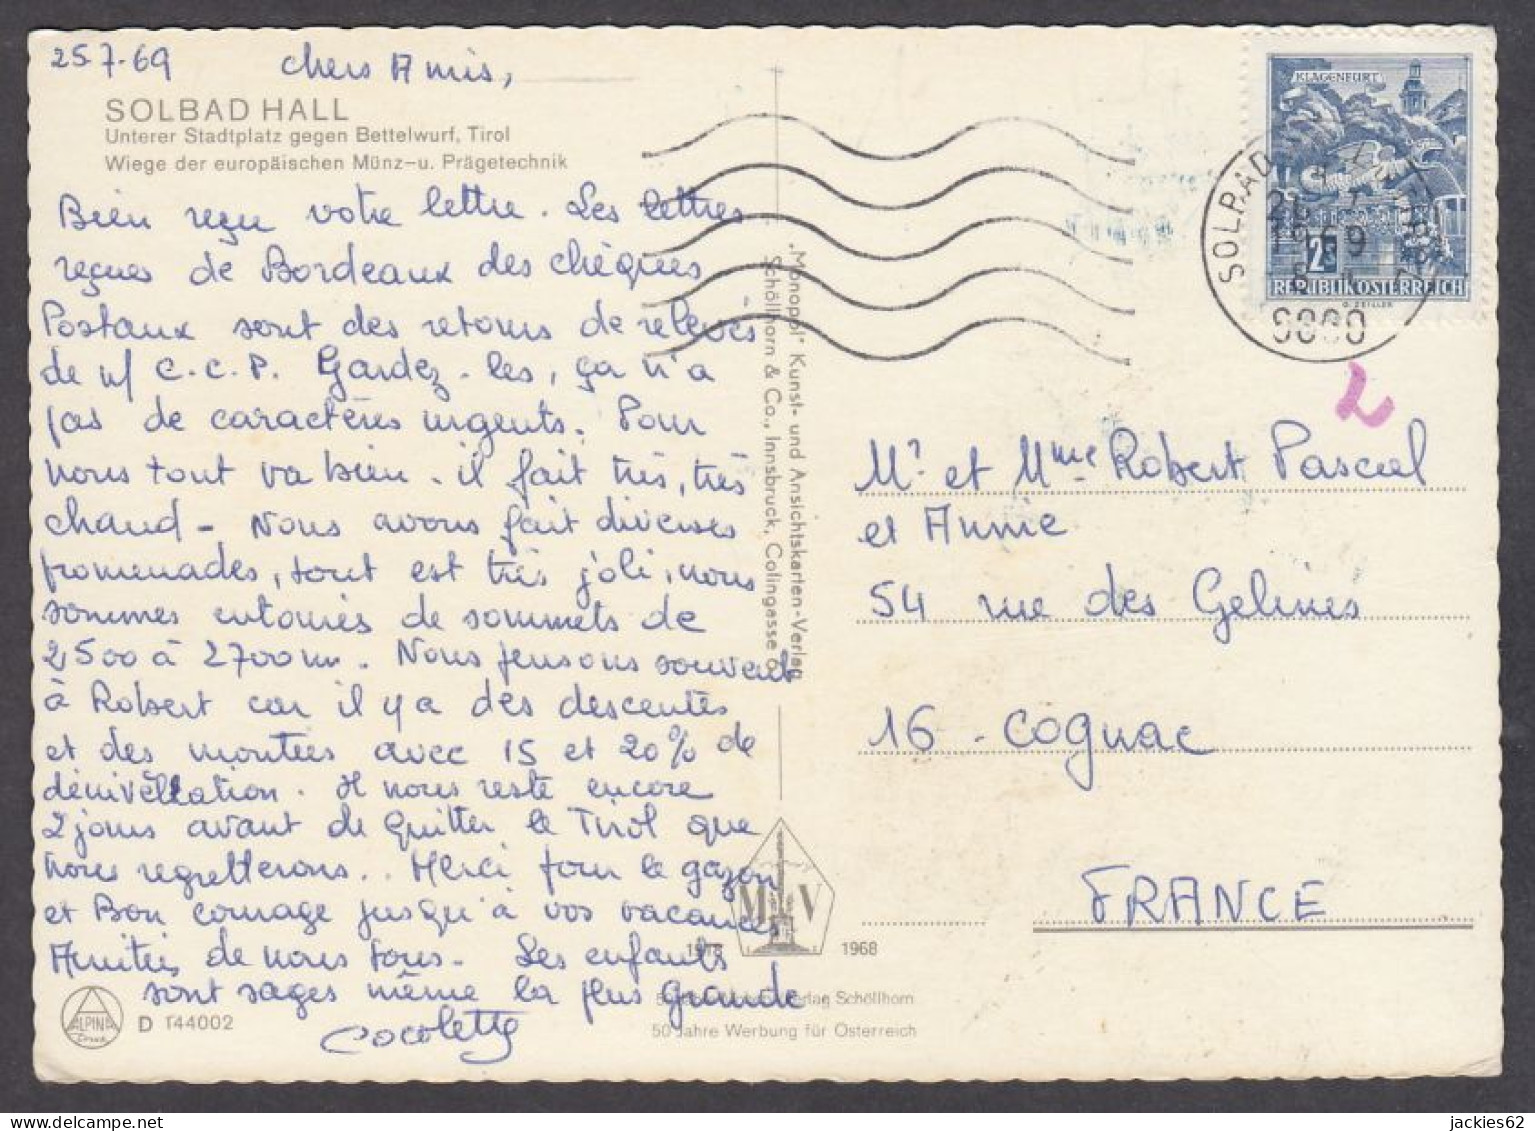 25.7.69 Chers Amis,
SOLBAD HALL
Unterer Stadtplatz gegen Bettelwurf, Tirol
Wiege der europäischen Münz-u. Prägetechnik
Bien reçu votre lettre. Les lettres
reçues de Bordeaux des chèques
Postaux sont des retours de relevés
de n/ C.C.P. Gardez-les, ça n'a
pas de caractères urgents. Pour
nous tout va bien. il fait très, très
chaud - Nous avons fait diverses
promenades, tout est très joli, nous
sommes entourés de sommets de
2500 à 2700 m. Nous pensons souvent
à Robert car il y a des descentes
et des montées avec 15 et 20% de
dénivellation. Il nous reste encore
2 jours avant de quitter le Tirol que
nous regretterons.. Merci pour le gazon
et Bon courage jusqu'à vos vacances
Amitiés de nous tous. Les enfants
sont sages même la plus grande
Cocolette
ALPINA
Druck
D 144002
"Monopol" Kunst- und Ansichtskarten-Verlag
Schöllhorn & Co., Innsbruck, Colingasse
M V
1918 1968
50 Jahre Verlag Schöllhorn
50 Jahre Werbung für Österreich
KLAGENFURT
2S
REPUBLIK ÖSTERREICH
G. ZEILLER
SOLBAD
1969
2
Mr et Mme Robert Pascal
et Annie
54 rue des Gelines
16 - Cognac
FRANCE
jackies62